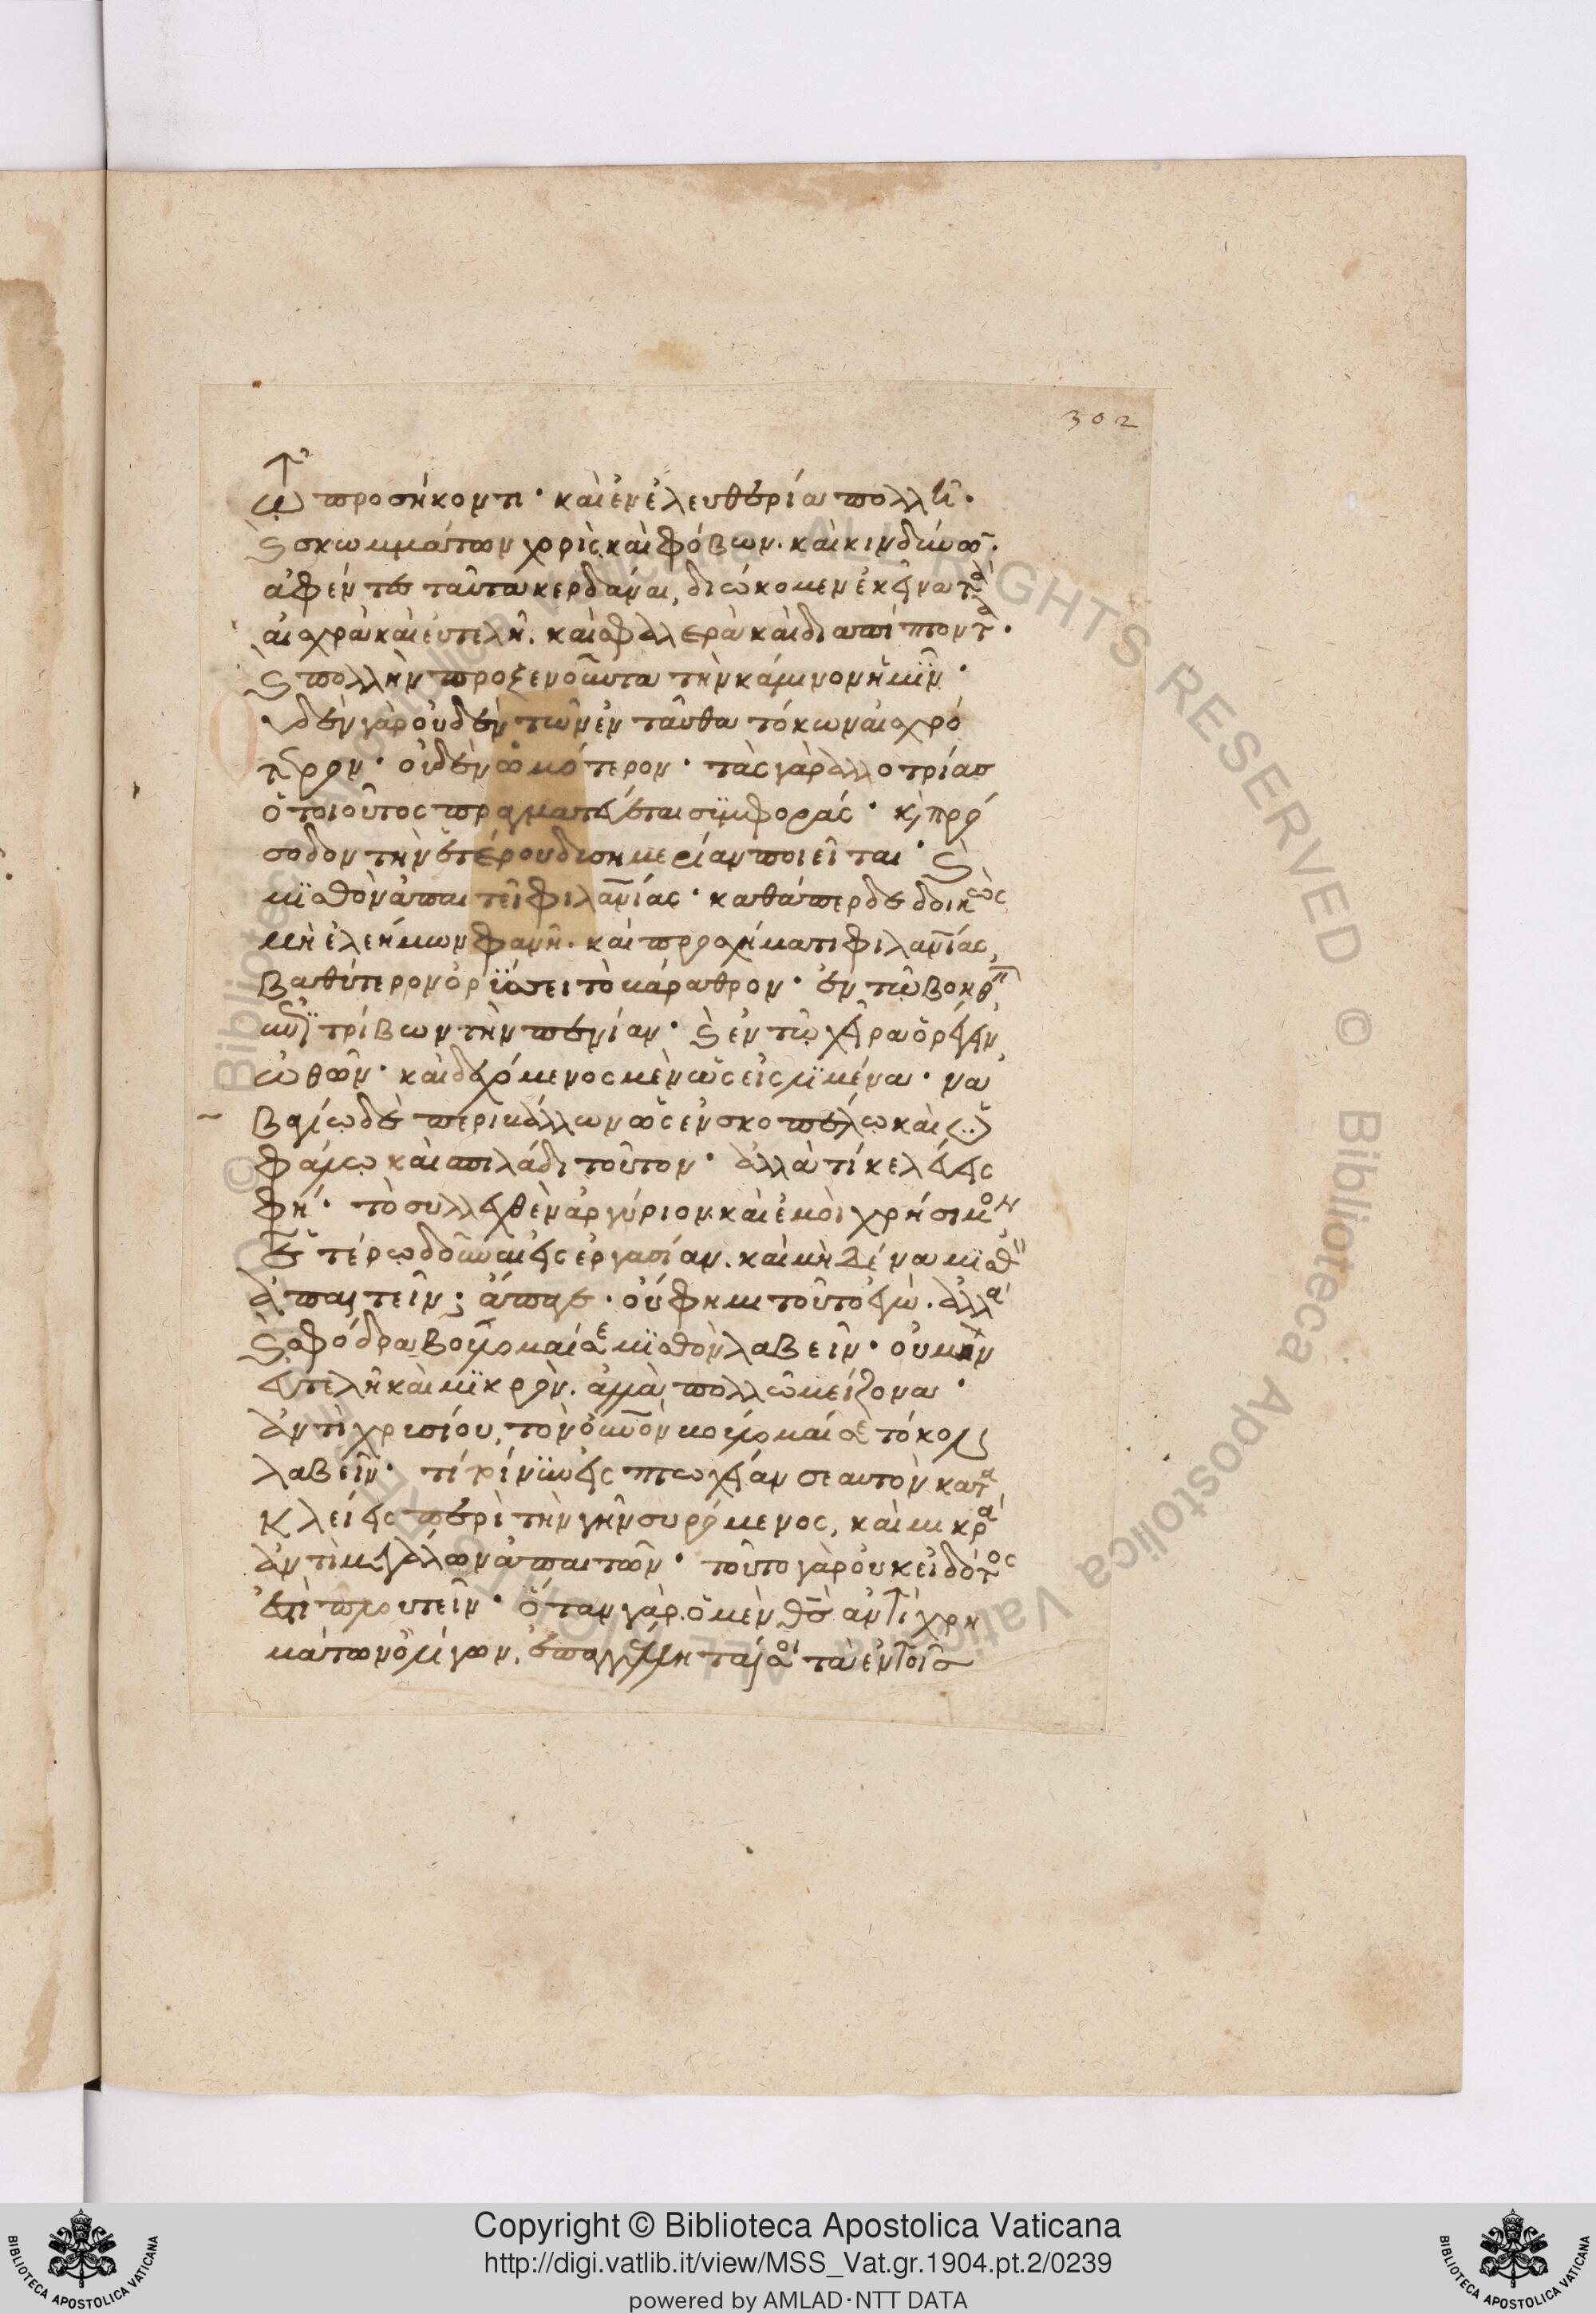 302
τῷ προσήκοντι· καὶ ἐν ἐλευθερία πολλῆ·
καὶ σκωμμάτων χορὶς καὶ φόβων· καὶ κινδύνων·
ἀφέντες ταῦτα κερδάναι, διώκομεν ἐκεῖνα τὰ
αἰσχρὰ καὶ εὐτελῆ. καὶ σφαλερὰ καὶ διαπίπτοντα·
καὶ πολλὴν προξενοῦντα τὴν κάμινον ἡμῖν·
Οὐδὲν γὰρ οὐδὲν τῶν ἐνταῦθα τόκων αἰσχρό
τερον· οὐδὲν ὠμότερον· τὰς γὰρ ἀλλοτρίας
ὁ τοιοῦτος πραγματεύεται συμφοράς· καὶ πρό
σοδον τὴν ἑτέρου δισημερίαν ποιεῖται· καὶ
μισθὸν ἀπαιτεῖ φιλανίας· καθάπερ δεδοικὼς
μὴ ἐλεήμων φανῆ· καὶ προσχήματι φιλανίας,
βαθύτερον ὀρύσσει τὸ βάραθρον· ἐν τῷ βοηθεῖν
συντρίβων τὴν πενίαν· καὶ ἐν τῷ χεῖρα ὀρέγειν
ὠθῶν· καὶ δεχόμενος μὲν ὡς εἰς λιμένα· ναυ
βαγίω δὲ περιβάλλων ὡς ἐν σκοπέλω καὶ
φάμω καὶ σπιλάδι τοῦτον· ἀλλὰ τί κελεύεις
φή· τὸ συλλεχθὲν ἀργύριον καὶ ἐμοὶ χρήσιμον
ἑτέρω δοῦναι εἰς ἐργασίαν. καὶ μηδένα μισθὸν
ἀπαιτεῖν; ἄπαγε· οὔ φημι τοῦτο ἐγώ· ἀλλὰ
καὶ σφόδρα βούλομαί σε μισθὸν λαβεῖν· οὐ μὴν
εὐτελῆ καὶ μικρὸν. ἀλλὰ πολλῶ μείζονα·
ἀντὶ χρυσίου, τὸν οὐνὸν βούλομαί σε τόκον
λαβεῖν· τί τοίνυν εἰς πτωχείαν σεαυτὸν κατα
κλείεις περὶ τὴν γῆν συρόμενος, καὶ μικρὰ
ἀντὶ μεγάλων ἀπαιτῶν· τοῦτο γὰρ οὐκ εἰδότος
ἐστὶ πλουτεῖν· ὅταν γὰρ ὁ μὲν θς ἀντὶ χρη
μάτων ὀλίγων, ἐπαγγέλληταί σοι τὰ ἐν τοῖς
Copyright © Biblioteca Apostolica Vaticana
http://digi.vatlib.it/view/MSS_Vat.gr.1904.pt.2/0239
powered by AMLAD·NTT DATA
BIBLIOTECA APOSTOLICA VATICANA
BIBLIOTECA APOSTOLICA VATICANA
© Biblioteca Apostolica Vaticana ALL RIGHTS RESERVED